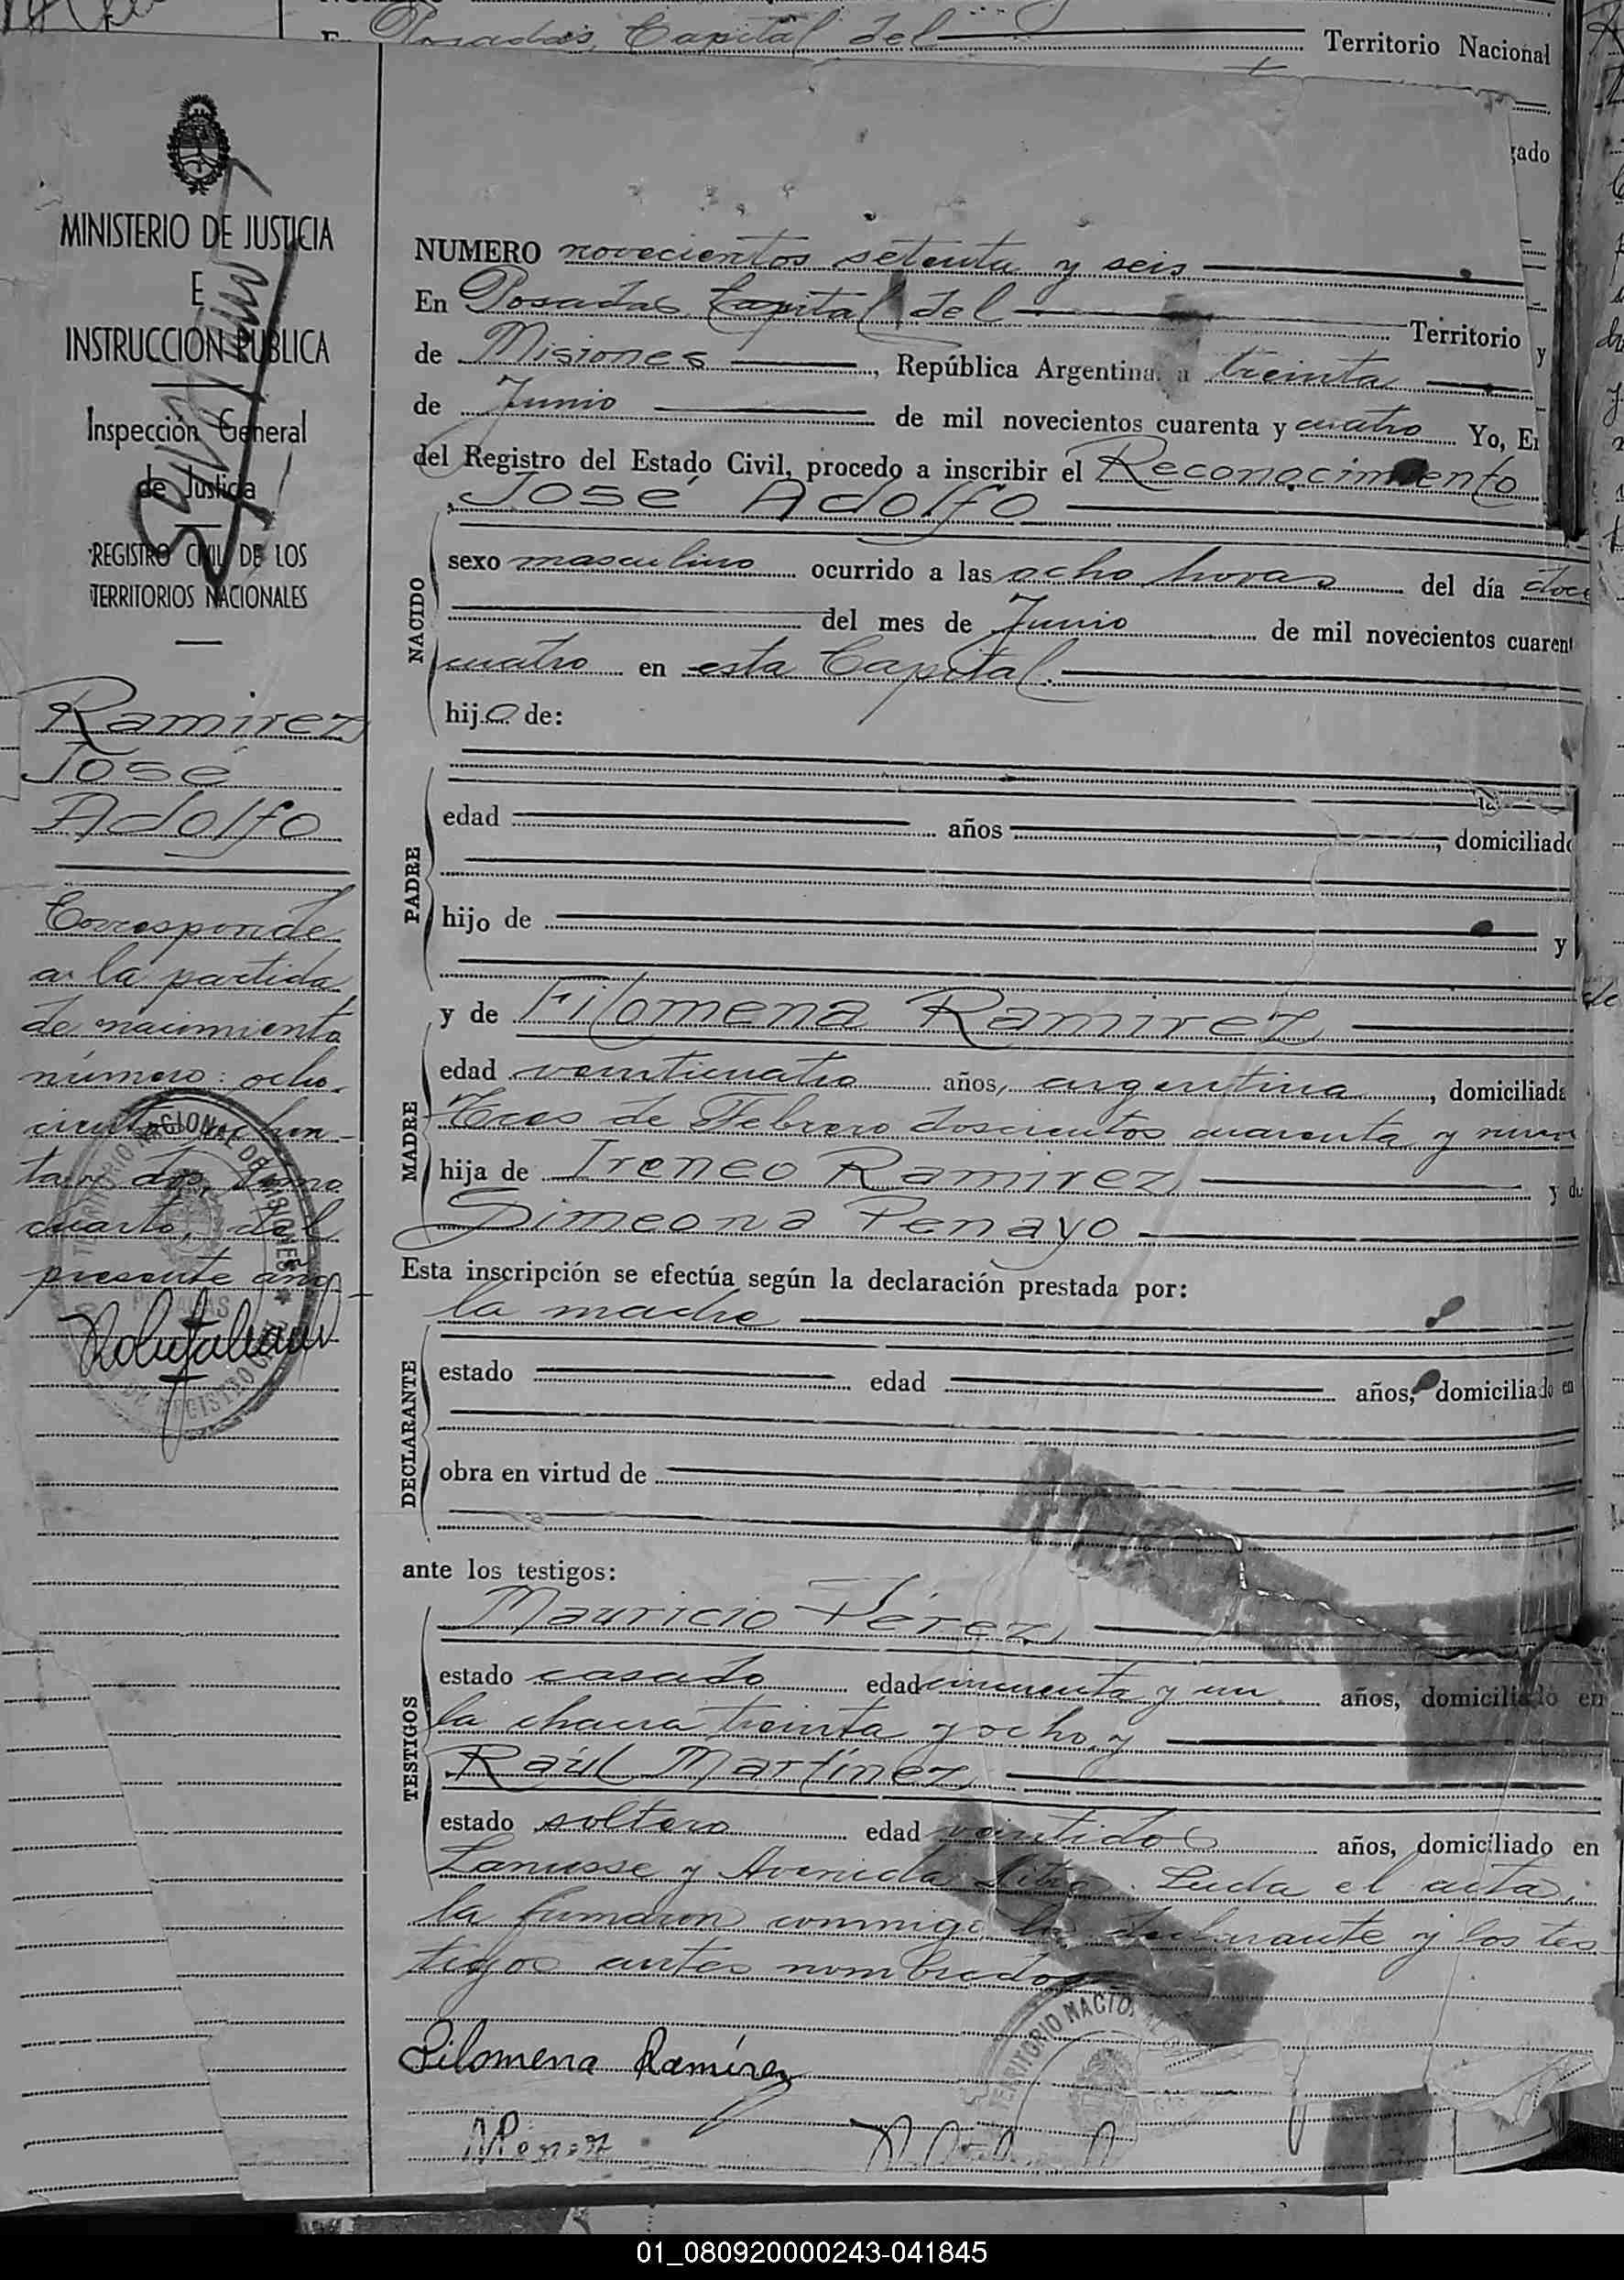 Posadas, Capital del
Territorio Nacional
MINISTERIO DE JUSTICIA
E
INSTRUCCION PUBLICA
Inspección General
de Justicia
REGISTRO CIVIL DE LOS
TERRITORIOS NACIONALES
Ramirez
José
Adolfo
Corresponde
a la partida
de nacimiento
número: ocho
cientos ochen-
ta y dos, tomo
cuarto, del
presente año
NUMERO novecientos setenta y seis
En Posadas Capital del Territorio
de Misiones, República Argentina a treinta
de Junio de mil novecientos cuarenta y cuatro Yo, En
del Registro del Estado Civil, procedo a inscribir el Reconocimiento
José Adolfo
NACIDO
sexo masculino ocurrido a las ocho horas del día doce
del mes de Junio de mil novecientos cuarent
cuatro en esta Capital.
hijo de:
PADRE
edad años, domiciliado
hijo de y
y de Filomena Ramirez
MADRE
edad veinticuatro años, argentina, domiciliada
Tres de Febrero doscientos cuarenta y nueve
hija de Ireneo Ramirez y de
Simeona Penayo
Esta inscripción se efectúa según la declaración prestada por:
la madre
DECLARANTE
estado edad años, domiciliado en
obra en virtud de
ante los testigos:
TESTIGOS
Mauricio Pérez
estado casado edad cincuenta y un años, domiciliado en
la chacra treinta y ocho, y
Raúl Martínez
estado soltero edad veintidos años, domiciliado en
Lanusse y Avenida Mitre. Leída el acta,
la firmaron conmigo la declarante y los tes
tigos antes nombrados
TERRITORIO NACIO
Filomena Ramírez
MPérez
01_080920000243-041845